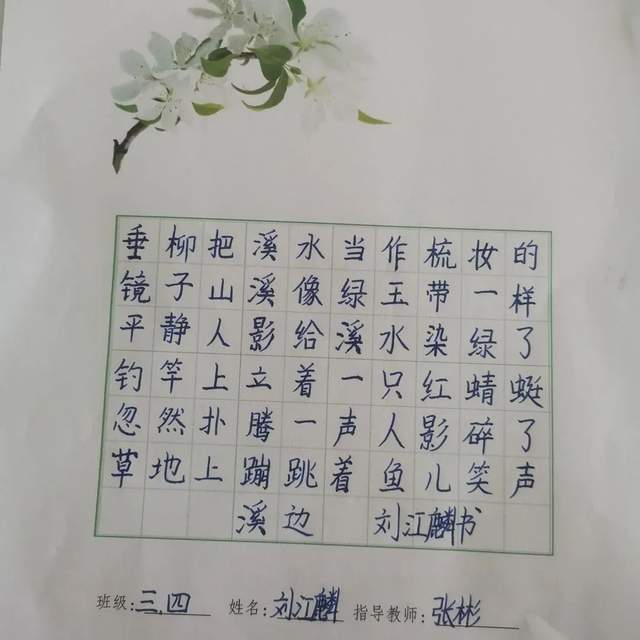 垂柳把溪水当作梳妆的
镜子山溪像绿玉带一样
平静人影给溪水染绿了
钓竿上立着一只红蜻蜓
忽然扑腾一声人影碎了
草地上蹦跳着鱼儿笑声
溪边 刘江麟书
班级:三.四 姓名:刘江麟 指导教师:张彬